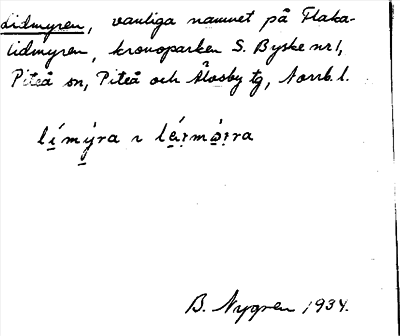 Lidmyren, vanliga namnet på Flaka-
lidmyren, kronoparken S. Byske nr 1,
Piteå sn, Piteå och Älvsby tg, Norrb. l.
B. Nygren 1934.